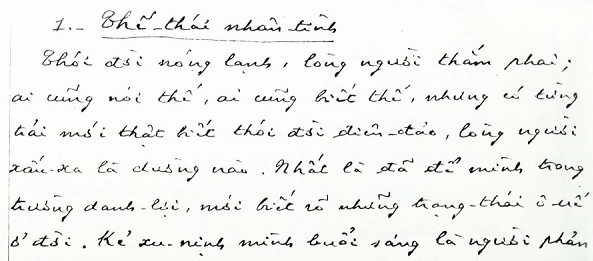 1.- Thế-thái nhân-tình
Thói đời nóng lạnh, lòng người thắm phai;
ai cũng nói thế, ai cũng biết thế, nhưng có từng
trải mới thật biết thói đời điên-đảo, lòng người
xấu-xa là dường nào. Nhất là đã để mình trong
trường danh-lợi, mới biết rõ những trạng-thái ô-uế
ở đời. Kẻ xu-nịnh mình buổi sáng là người phản